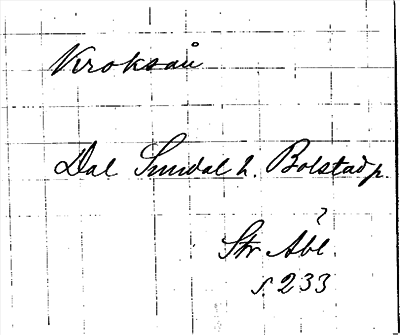 Kroksån
Dal Sundal h. Bolstad p.
?
Str Åbl.
s. 233